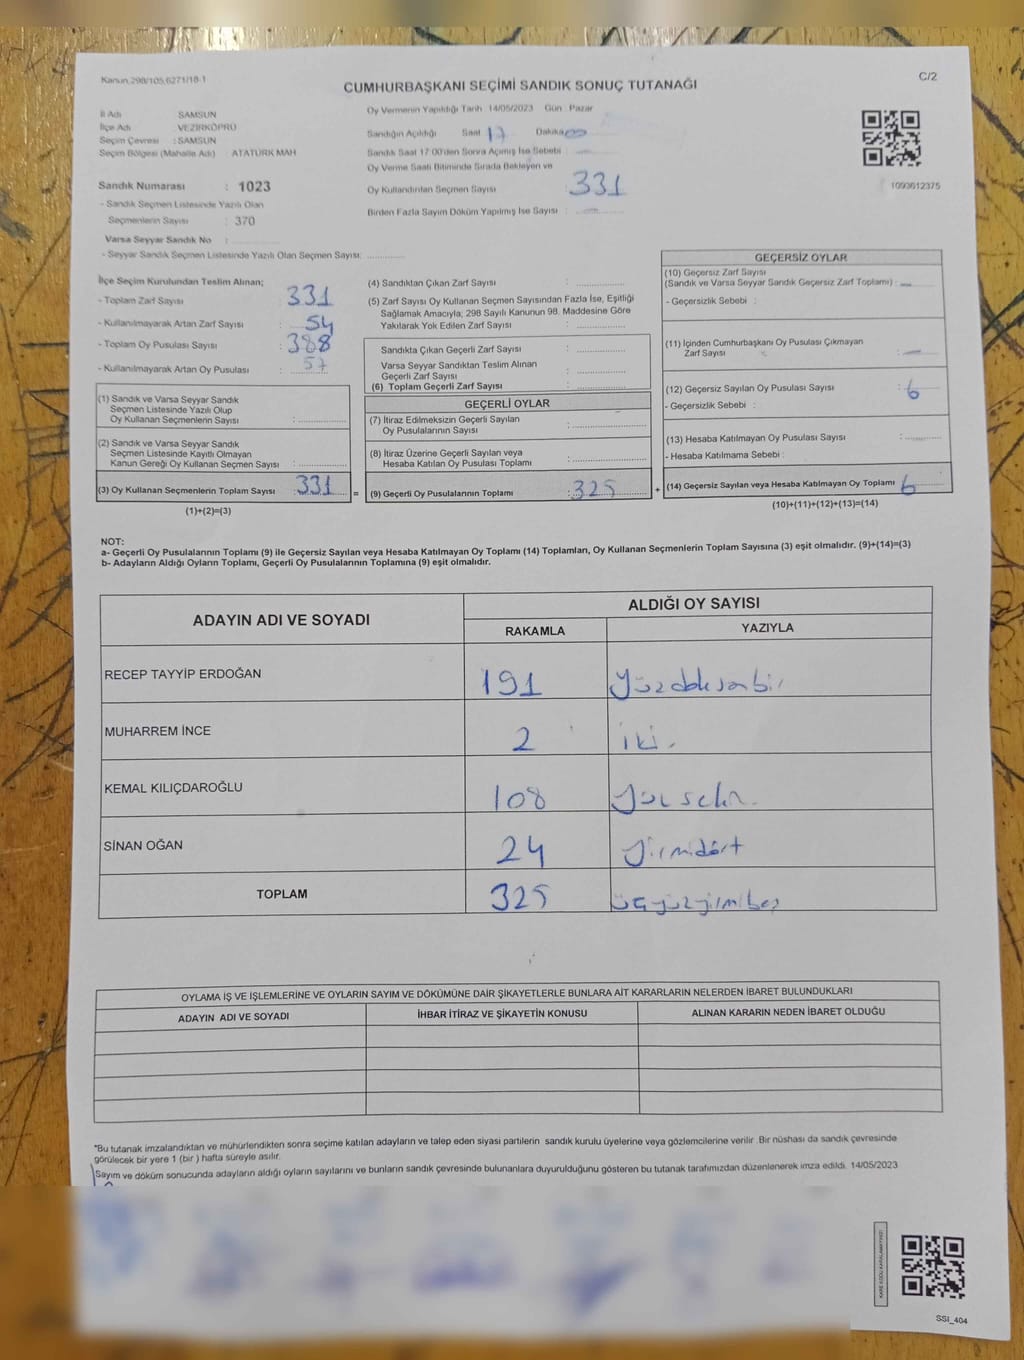 Kanun.298/105,6271/18-1
C/2
CUMHURBAŞKANI SEÇİMİ SANDIK SONUÇ TUTANAĞI
İl Adı SAMSUN
İlçe Adı VEZİRKÖPRÜ
Seçim Çevresi : SAMSUN
Seçim Bölgesi (Mahalle Adı) : ATATÜRK MAH
Oy Vermenin Yapıldığı Tarih 14/05/2023 Gün Pazar
Sandığın Açıldığı Saat 17 Dakika 00
Sandık Saat 17:00'den Sonra Açılmış İse Sebebi :
Oy Verme Saati Bitiminde Sırada Bekleyen ve
Oy Kullandırılan Seçmen Sayısı 331
Birden Fazla Sayım Döküm Yapılmış İse Sayısı :
1093612375
Sandık Numarası : 1023
- Sandık Seçmen Listesinde Yazılı Olan
Seçmenlerin Sayısı : 370
Varsa Seyyar Sandık No :
- Seyyar Sandık Seçmen Listesinde Yazılı Olan Seçmen Sayısı:
İlçe Seçim Kurulundan Teslim Alınan;
- Toplam Zarf Sayısı 331
- Kullanılmayarak Artan Zarf Sayısı : 54
- Toplam Oy Pusulası Sayısı : 388
- Kullanılmayarak Artan Oy Pusulası : 57
(1) Sandık ve Varsa Seyyar Sandık
Seçmen Listesinde Yazılı Olup
Oy Kullanan Seçmenlerin Sayısı :
(2) Sandık ve Varsa Seyyar Sandık
Seçmen Listesinde Kayıtlı Olmayan
Kanun Gereği Oy Kullanan Seçmen Sayısı :
(3) Oy Kullanan Seçmenlerin Toplam Sayısı : 331
(1)+(2)=(3)
=
(4) Sandıktan Çıkan Zarf Sayısı :
(5) Zarf Sayısı Oy Kullanan Seçmen Sayısından Fazla İse, Eşitliği
Sağlamak Amacıyla; 298 Sayılı Kanunun 98. Maddesine Göre
Yakılarak Yok Edilen Zarf Sayısı :
Sandıkta Çıkan Geçerli Zarf Sayısı :
Varsa Seyyar Sandıktan Teslim Alınan
Geçerli Zarf Sayısı :
(6) Toplam Geçerli Zarf Sayısı :
GEÇERLİ OYLAR
(7) İtiraz Edilmeksizin Geçerli Sayılan
Oy Pusulalarının Sayısı :
(8) İtiraz Üzerine Geçerli Sayılan veya
Hesaba Katılan Oy Pusulası Toplamı :
(9) Geçerli Oy Pusulalarının Toplamı : 325
+
GEÇERSİZ OYLAR
(10) Geçersiz Zarf Sayısı
(Sandık ve Varsa Seyyar Sandık Geçersiz Zarf Toplamı) :
- Geçersizlik Sebebi :
(11) İçinden Cumhurbaşkanı Oy Pusulası Çıkmayan
Zarf Sayısı :
(12) Geçersiz Sayılan Oy Pusulası Sayısı : 6
- Geçersizlik Sebebi :
(13) Hesaba Katılmayan Oy Pusulası Sayısı :
- Hesaba Katılmama Sebebi :
(14) Geçersiz Sayılan veya Hesaba Katılmayan Oy Toplamı : 6
(10)+(11)+(12)+(13)=(14)
NOT:
a- Geçerli Oy Pusulalarının Toplamı (9) ile Geçersiz Sayılan veya Hesaba Katılmayan Oy Toplamı (14) Toplamları, Oy Kullanan Seçmenlerin Toplam Sayısına (3) eşit olmalıdır. (9)+(14)=(3)
b- Adayların Aldığı Oyların Toplamı, Geçerli Oy Pusulalarının Toplamına (9) eşit olmalıdır.
ADAYIN ADI VE SOYADI ALDIĞI OY SAYISI
RAKAMLA YAZIYLA
RECEP TAYYİP ERDOĞAN 191 yüzdoksanbir
MUHARREM İNCE 2 iki
KEMAL KILIÇDAROĞLU 108 yüzsekiz
SİNAN OĞAN 24 yirmidört
TOPLAM 325 üçyüzyirmibeş
OYLAMA İŞ VE İŞLEMLERİNE VE OYLARIN SAYIM VE DÖKÜMÜNE DAİR ŞİKAYETLERLE BUNLARA AİT KARARLARIN NELERDEN İBARET BULUNDUKLARI
ADAYIN ADI VE SOYADI İHBAR İTİRAZ VE ŞİKAYETİN KONUSU ALINAN KARARIN NEDEN İBARET OLDUĞU
*Bu tutanak imzalandıktan ve mühürlendikten sonra seçime katılan adayların ve talep eden siyasi partilerin sandık kurulu üyelerine veya gözlemcilerine verilir. Bir nüshası da sandık çevresinde
görülecek bir yere 1 (bir) hafta süreyle asılır.
Sayım ve döküm sonucunda adayların aldığı oyların sayılarını ve bunların sandık çevresinde bulunanlara duyurulduğunu gösteren bu tutanak tarafımızdan düzenlenerek imza edildi. 14/05/2023
KARE KODU KARALAMAYINIZ!
SSI_404